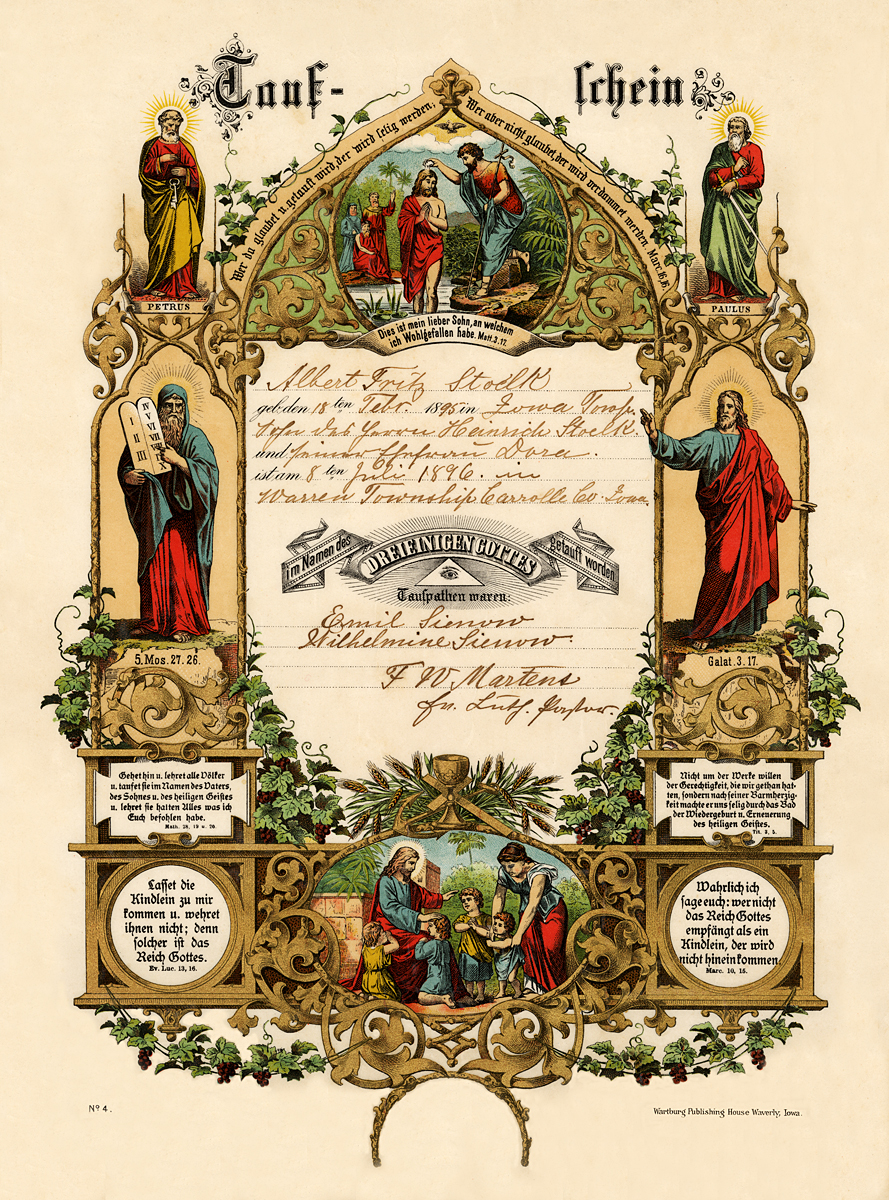 Tauf-schein
Wer da glaubet u. getauft wird, der wird selig werden,
Wer aber nicht glaubet, der wird verdammet werden. Marc. 16, 16
PETRUS
PAULUS
Dies ist mein lieber Sohn, an welchem
ich Wohlgefallen habe. Matt. 3. 17.
Albert Fritz Stoelk
geb. den 18 ten Febr. 1895 in Iowa Townp.
Sohn des Herrn Heinrich Stoelk.
und seiner Ehefrau Dora.
ist am 8 ten Juli 1896. in
Warren Township Carrolle Co. Iowa
I II III IV V VI VII VIII IX X
im Namen des DREIEINIGEN GOTTES getauft worden
Taufpathen waren:
Emil Sienow
Wilhelmine Sienow.
F W. Martens
ev. Luth. Pastor.
5. Mos. 27. 26.
Galat. 3. 17.
Gehet hin u. lehret alle Völker
u. taufet sie im Namen des Vaters,
des Sohnes u. des heiligen Geistes
u. lehret sie halten Alles was ich
Euch befohlen habe.
Math. 28, 19 u. 20.
Nicht um der Werke willen
der Gerechtigkeit, die wir gethan hat-
ten, sondern nach seiner Barmherzig-
keit machte er uns selig durch das Bad
der Wiedergeburt u. Erneuerung
des heiligen Geistes.
Tit. 3, 5.
Lasset die
Kindlein zu mir
kommen u. wehret
ihnen nicht; denn
solcher ist das
Reich Gottes.
Ev. Luc. 13, 16.
Wahrlich ich
sage euch: wer nicht
das Reich Gottes
empfängt als ein
Kindlein, der wird
nicht hinein kommen.
Marc. 10, 15.
No 4.
Wartburg Publishing House Waverly, Iowa.